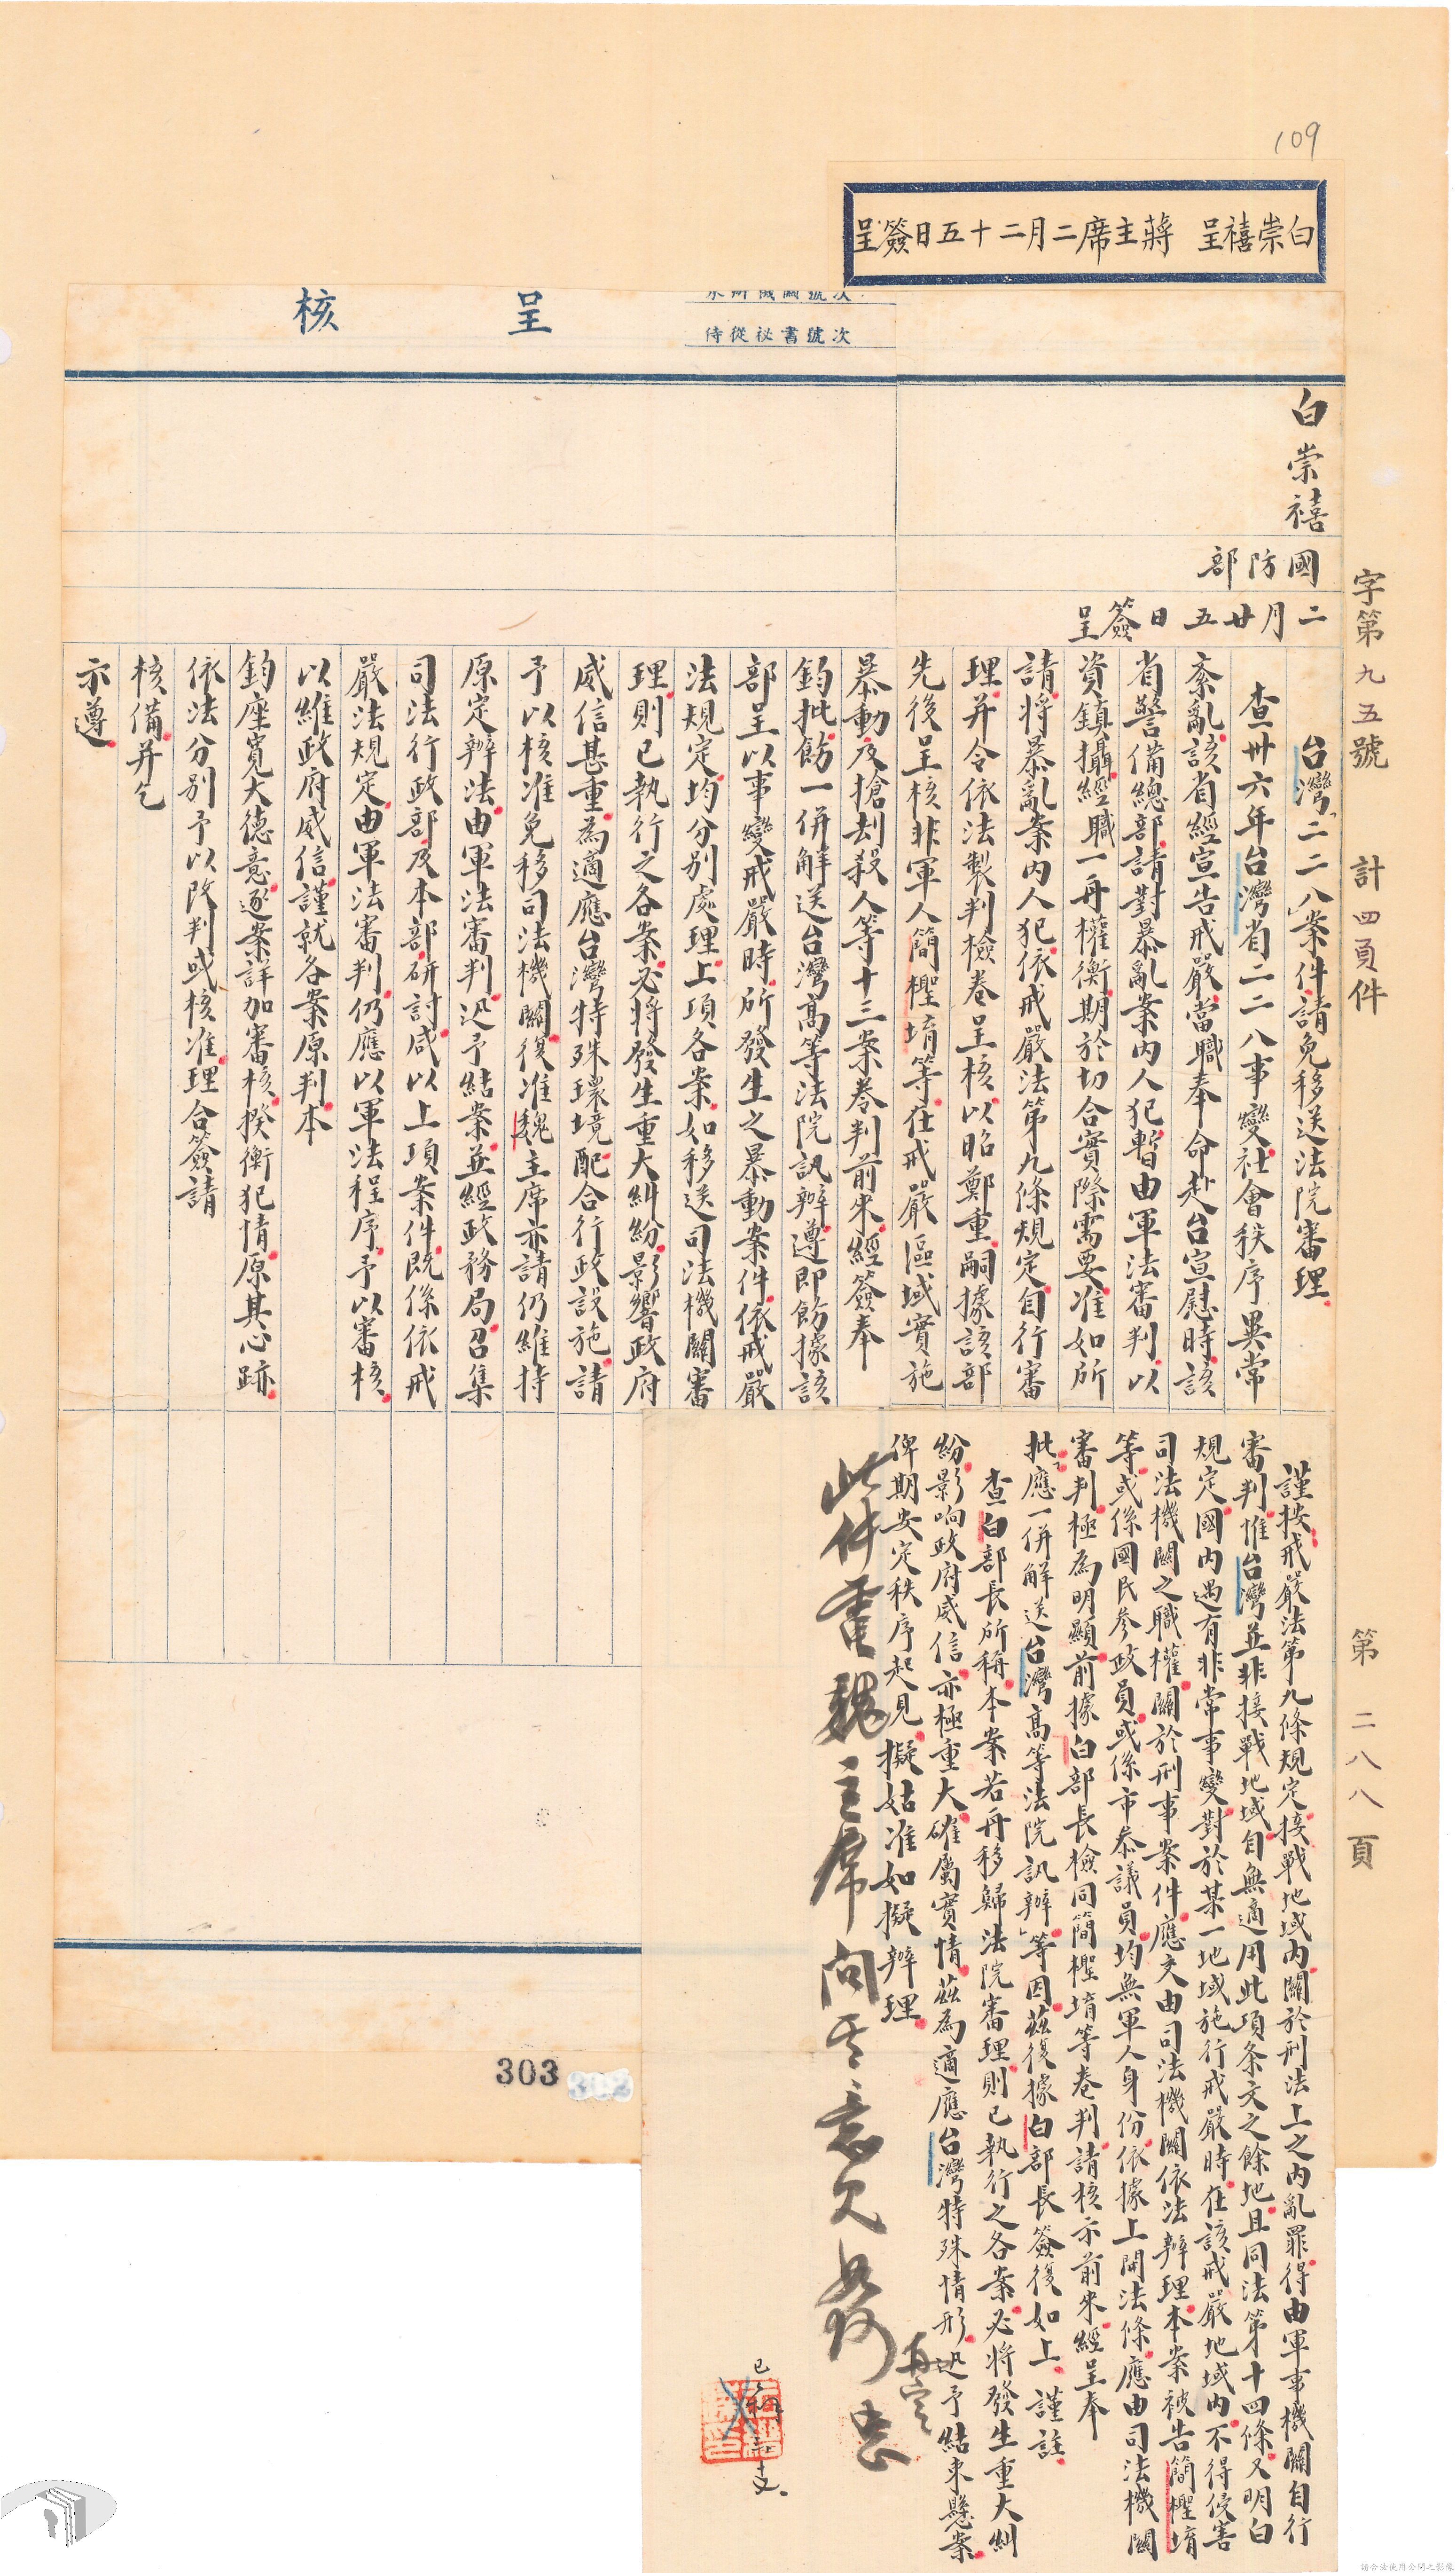 109
白崇禧呈 蔣主席二月二十五日簽呈
呈核
次號書祕從侍
字第九五號 計四頁件 第二八八頁
白崇禧
國防部
二月廿五日簽呈
台灣「二二八」案件請免移送法院審理
查卅六年台灣省二二八事變社會秩序異常
紊亂該省經宣告戒嚴當職奉命赴台宣慰時該
省警備總部請對暴亂案內人犯暫由軍法審判以
資鎮攝經職一再權衡期於切合實際需要准如所
請將暴亂案內人犯依戒嚴法第九條規定自行審
理并令依法製判檢卷呈核以昭鄭重嗣據該部
先後呈核非軍人簡檉堉等在戒嚴區域實施
暴動及搶刦殺人等十三案卷判前來經簽奉
鈞批飭一併解送台灣高等法院訊辦遵即飭據該
部呈以事變戒嚴時所發生之暴動案件依戒嚴
法規定均分別處理上項各案如移送司法機關審
理則已執行之各案必將發生重大糾紛影響政府
威信甚重為適應台灣特殊環境配合行政設施請
予以核准免移司法機關復准魏主席亦請仍維持
原定辦法由軍法審判迅予結案並經政務局召集
司法行政部及本部研討咸以上項案件既係依戒
嚴法規定由軍法審判仍應以軍法程序予以審核
以維政府威信謹就各案原判本
鈞座寬大德意逐案詳加審核揆衡犯情原其心跡
依法分別予以改判或核准理合簽請
核備并乞
示遵
謹按戒嚴法第九條規定接戰地域內關於刑法上之內亂罪得由軍事機關自行
審判惟台灣並非接戰地域自無適用此項条文之餘地且同法第十四條又明白
規定國內遇有非常事變對於某一地域施行戒嚴時在該戒嚴地域內不得侵害
司法機關之職權關於刑事案件應交由司法機關依法辦理本案被告簡檉堉
等或係國民參政員或係市參議員均無軍人身份依據上開法條應由司法機關
審判極為明顯前據白部長檢同簡檉堉等卷判請核示前來經呈奉
批「應一併解送台灣高等法院訊辦」等因茲復據白部長簽復如上謹註
查白部長所稱本案若再移歸法院審理則已執行之各案必將發生重大糾
紛影响政府威信亦極重大確屬實情茲為適應台灣特殊情形迅予結束懸案
俾期安定秩序起見擬姑准如擬辦理
此件電魏主席問其意見如何再定
303
請合法使用公開之影像